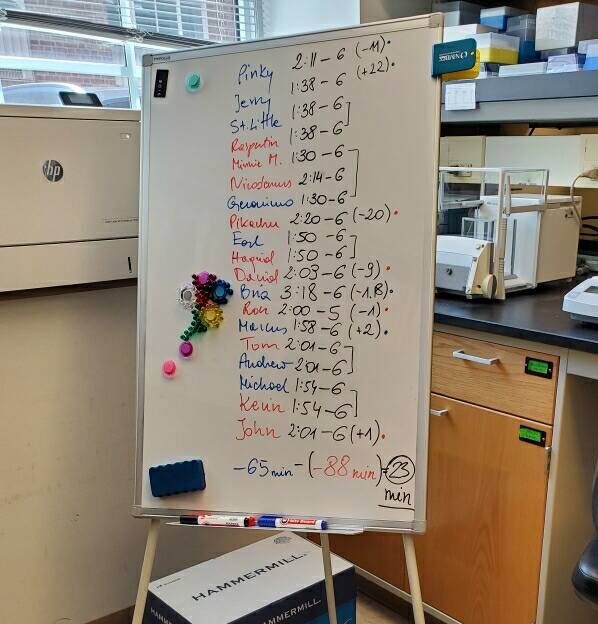 Pinky 2:11-6 (-11)
Jerry 1:38-6 (+22)
St. Little 1:38-6
Rasputin 1:38-6
Minnie M. 1:30-6
Nicodemus 2:14-6
Geronimo 1:30-6
Pikachu 2:20-6 (-20)
Earl 1:50-6
Hagrid 1:50-6
David 2:03-6 (-9)
2:00-5 (-1)
Marcus 1:58-6 (+2)
Tom 2:01-6
Andrew 2:01-6
Michael 1:54-6
Kevin 1:54-6
John 2:01-6 (+1)
-65 min - (-88 min) = 23
min
hp
HAMMERMILL
HAMMERMILL